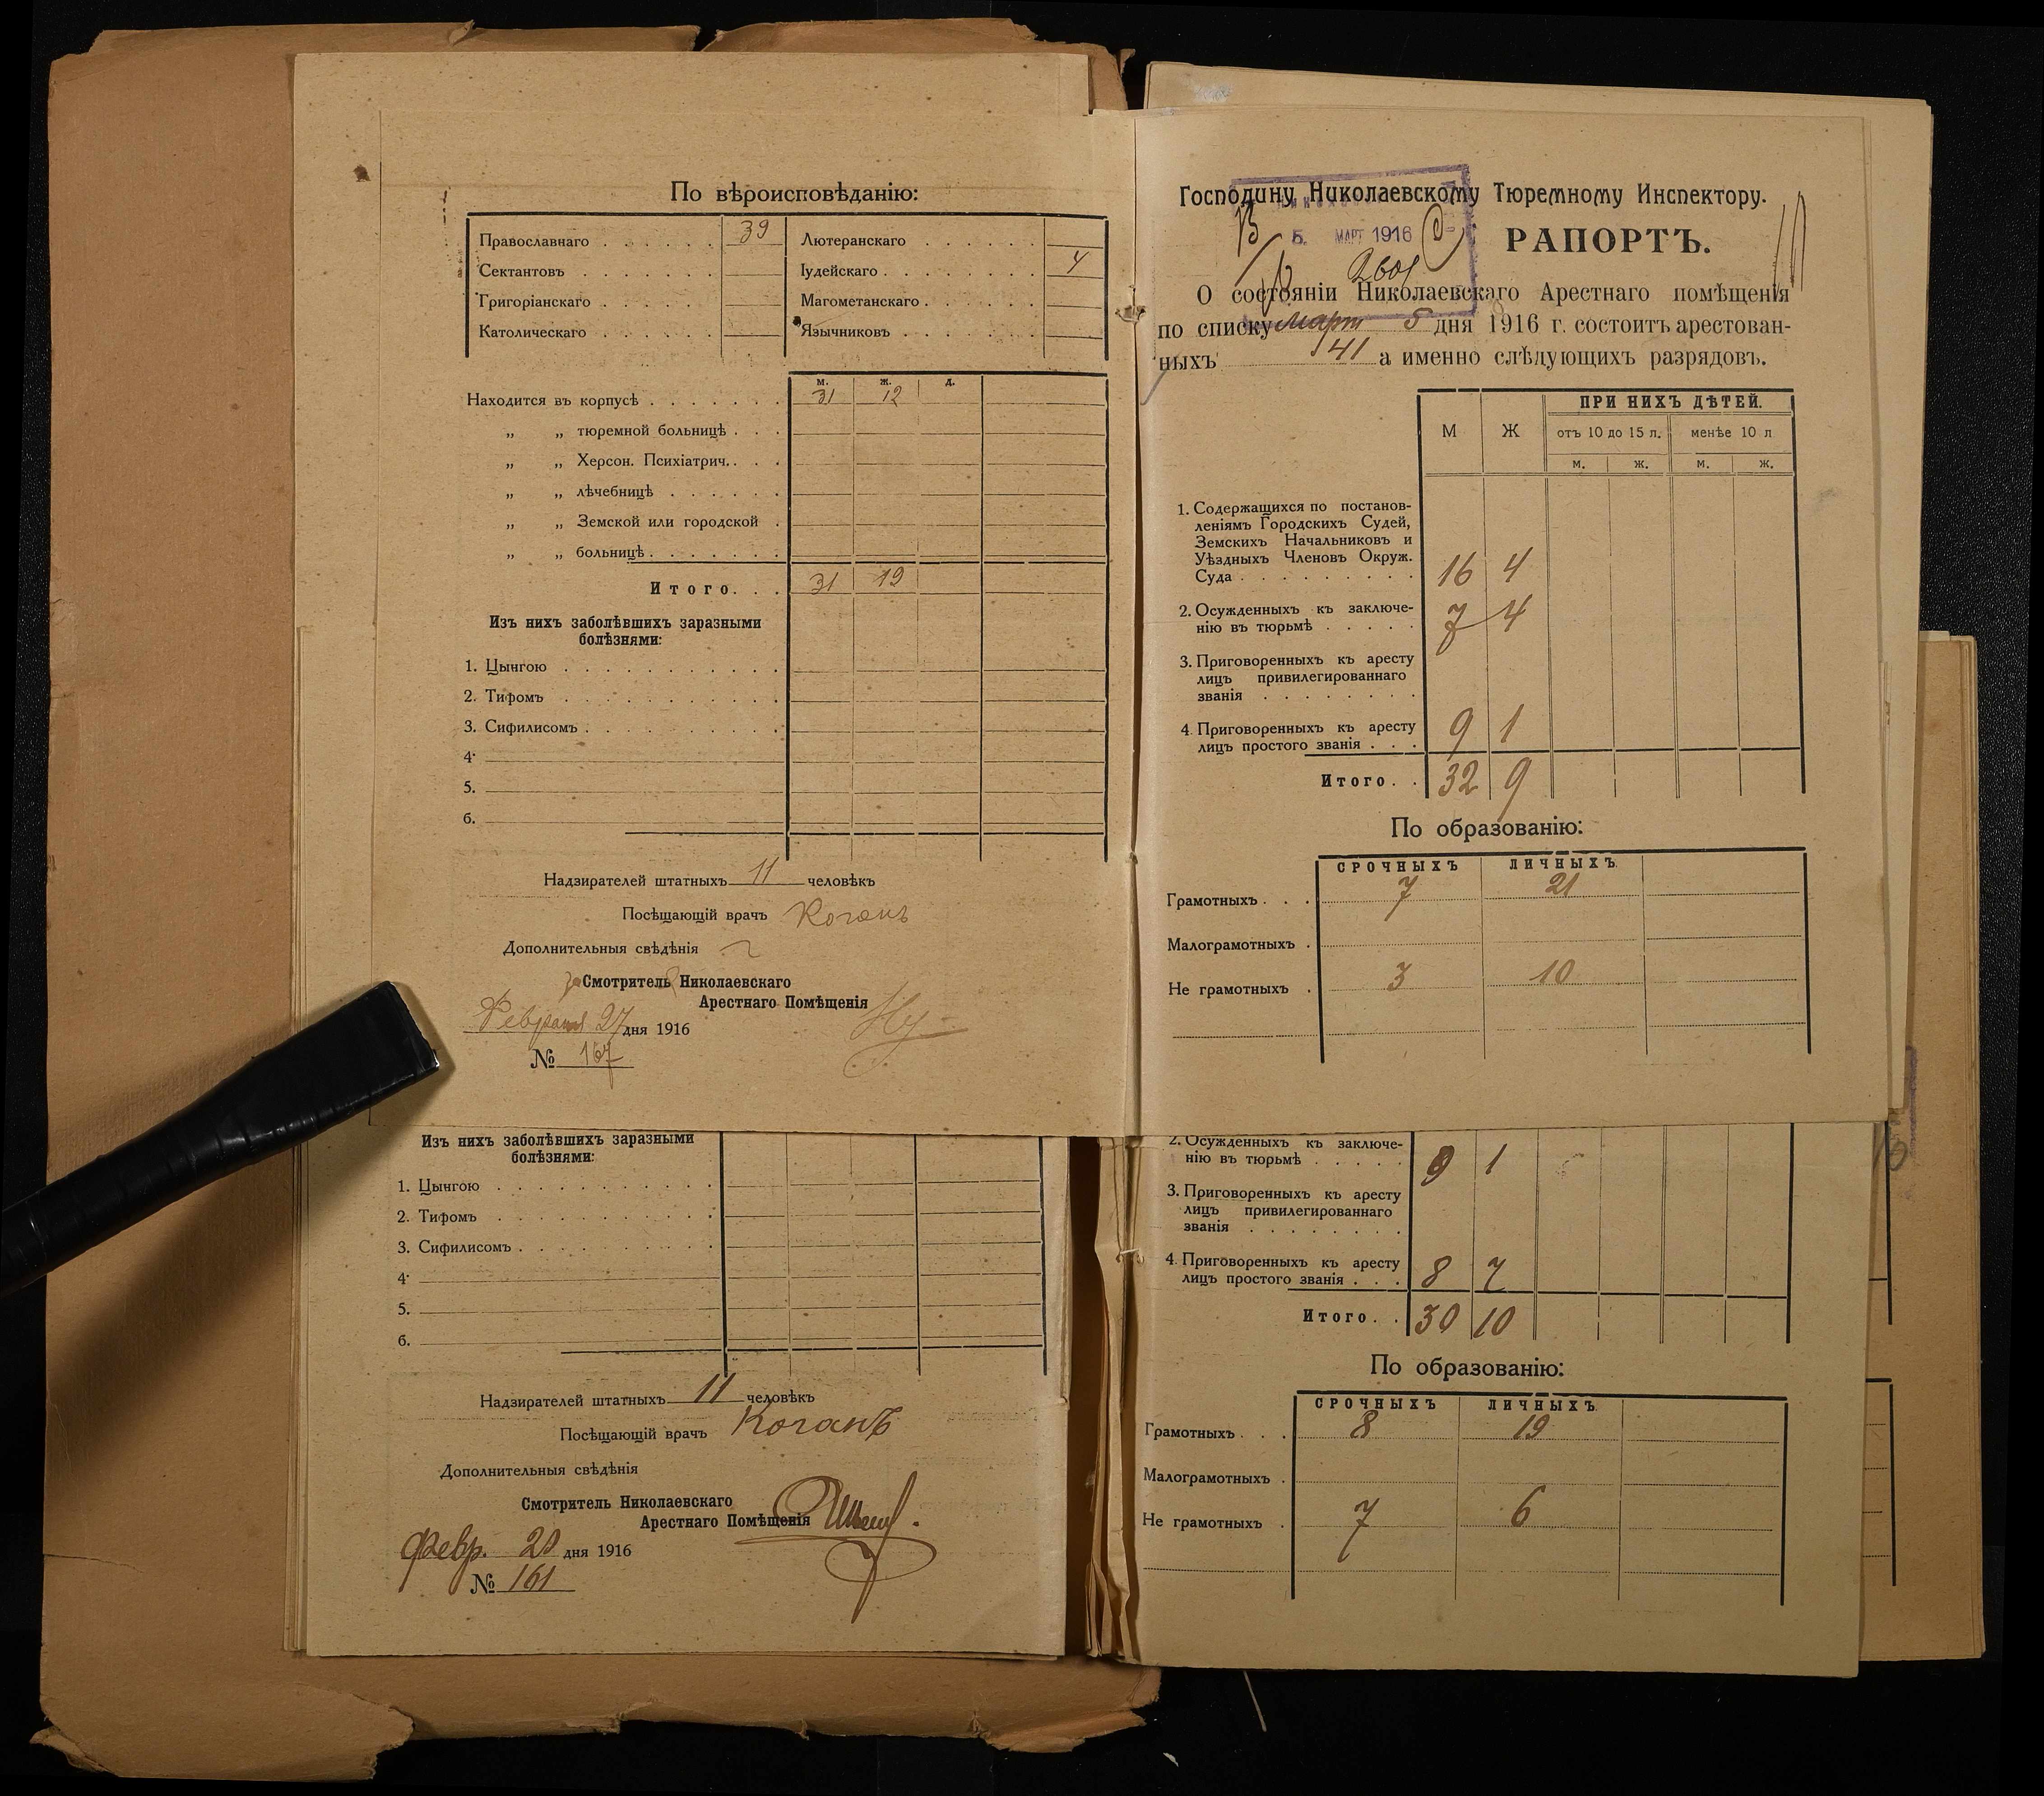 По вѣроисповѣданію:
Православнаго . . . . . . 39
Сектантовъ . . . . . . .
Григоріанскаго . . . . .
Католическаго . . . . . .
Лютеранскаго . . . . . .
Іудейскаго . . . . . . . . 4
Магометанскаго . . . . . .
Язычниковъ . . . . . . .
м. ж. д.
Находится въ корпусѣ . . . . . . . 31 12
„ „ тюремной больницѣ . . .
„ „ Херсон. Психіатрич. . . .
„ „ лѣчебницѣ . . . . . .
„ „ Земской или городской .
„ „ больницѣ . . . . . . .
Итого. . . 31 12
Изъ нихъ заболѣвшихъ заразными
болѣзнями:
1. Цынгою . . . . . . . . . . .
2. Тифомъ . . . . . . . . . . .
3. Сифилисомъ . . . . . . . . . .
4.
5.
6.
Надзирателей штатныхъ 11 человѣкъ
Посѣщающій врачъ Коганъ
Дополнительныя свѣдѣнія
за Смотритель Николаевскаго
Арестнаго Помѣщенія
Февраля 27 дня 1916
№ 167
Изъ нихъ заболѣвшихъ заразными
болѣзнями:
1. Цынгою . . . . . . . . . . .
2. Тифомъ . . . . . . . . . . .
3. Сифилисомъ . . . . . . . . . .
4.
5.
6.
Надзирателей штатныхъ 11 человѣкъ
Посѣщающій врачъ Коганъ
Дополнительныя свѣдѣнія
Смотритель Николаевскаго
Арестнаго Помѣщенія
Февр. 20 дня 1916
№ 161
Господину Николаевскому Тюремному Инспектору.
5. МАРТ 1916
РАПОРТЪ.
О состояніи Николаевскаго Арестнаго помѣщенія
по списку Март 5 дня 1916 г. состоитъ арестован-
ныхъ 41 а именно слѣдующихъ разрядовъ.
М Ж ПРИ НИХЪ ДѢТЕЙ.
отъ 10 до 15 л. менѣе 10 л
м. ж. м. ж.
1. Содержащихся по постанов-
леніямъ Городскихъ Судей,
Земскихъ Начальниковъ и
Уѣздныхъ Членовъ Окруж.
Суда . . . . . . . . . 16 4
2. Осужденныхъ къ заключе-
нію въ тюрьмѣ . . . . . 7 4
3. Приговоренныхъ къ аресту
лицъ привилегированнаго
званія . . . . . . . .
4. Приговоренныхъ къ аресту
лицъ простого званія . . . 9 1
Итого. . 32 9
По образованію:
СРОЧНЫХЪ ЛИЧНЫХЪ
Грамотныхъ . . . 7 21
Малограмотныхъ .
Не грамотныхъ . 3 10
2. Осужденныхъ къ заключе-
нію въ тюрьмѣ . . . . . 9 1
3. Приговоренныхъ къ аресту
лицъ привилегированнаго
званія . . . . . . . .
4. Приговоренныхъ къ аресту
лицъ простого званія . . . 8 7
Итого. . 30 10
По образованію:
СРОЧНЫХЪ ЛИЧНЫХЪ
Грамотныхъ . . . 8 19
Малограмотныхъ .
Не грамотныхъ . 7 6